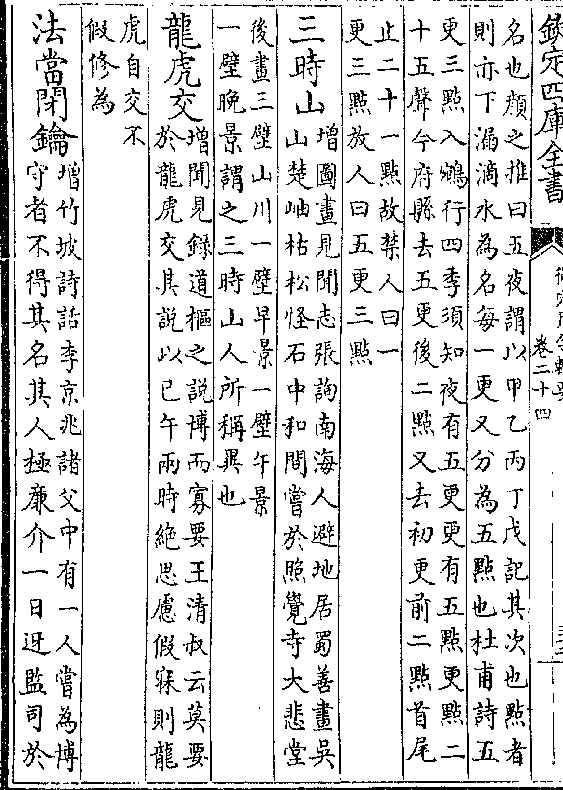 欽定四庫全書
卷二十四
名也顔之推曰五夜謂以甲乙丙丁戊記其次也點者
則亦下漏滴水為名每一更又分為五點也杜甫詩五
更三點入鵷行四季須知夜有五更更有五點更點二
十五聲今府縣去五更後二點又去初更前二點首尾
止二十一點故禁人曰一
更三點放人曰五更三點
三時山
增圖畫見聞志張詢南海人避地居蜀善畫吳
山楚岫枯松怪石中和間嘗於照覺寺大悲堂
後畫三壁山川一壁早景一壁午景
一壁晚景謂之三時山人所稱異也
龍虎交
增聞見錄道樞之說博而寡要王清叔云莫要
於龍虎交其說以巳午兩時絶思慮假寐則龍
虎自交不
假修為
法當閉鑰
增竹坡詩話李京兆諸父中有一人嘗為博
守者不得其名其人極廉介一日迓監司於